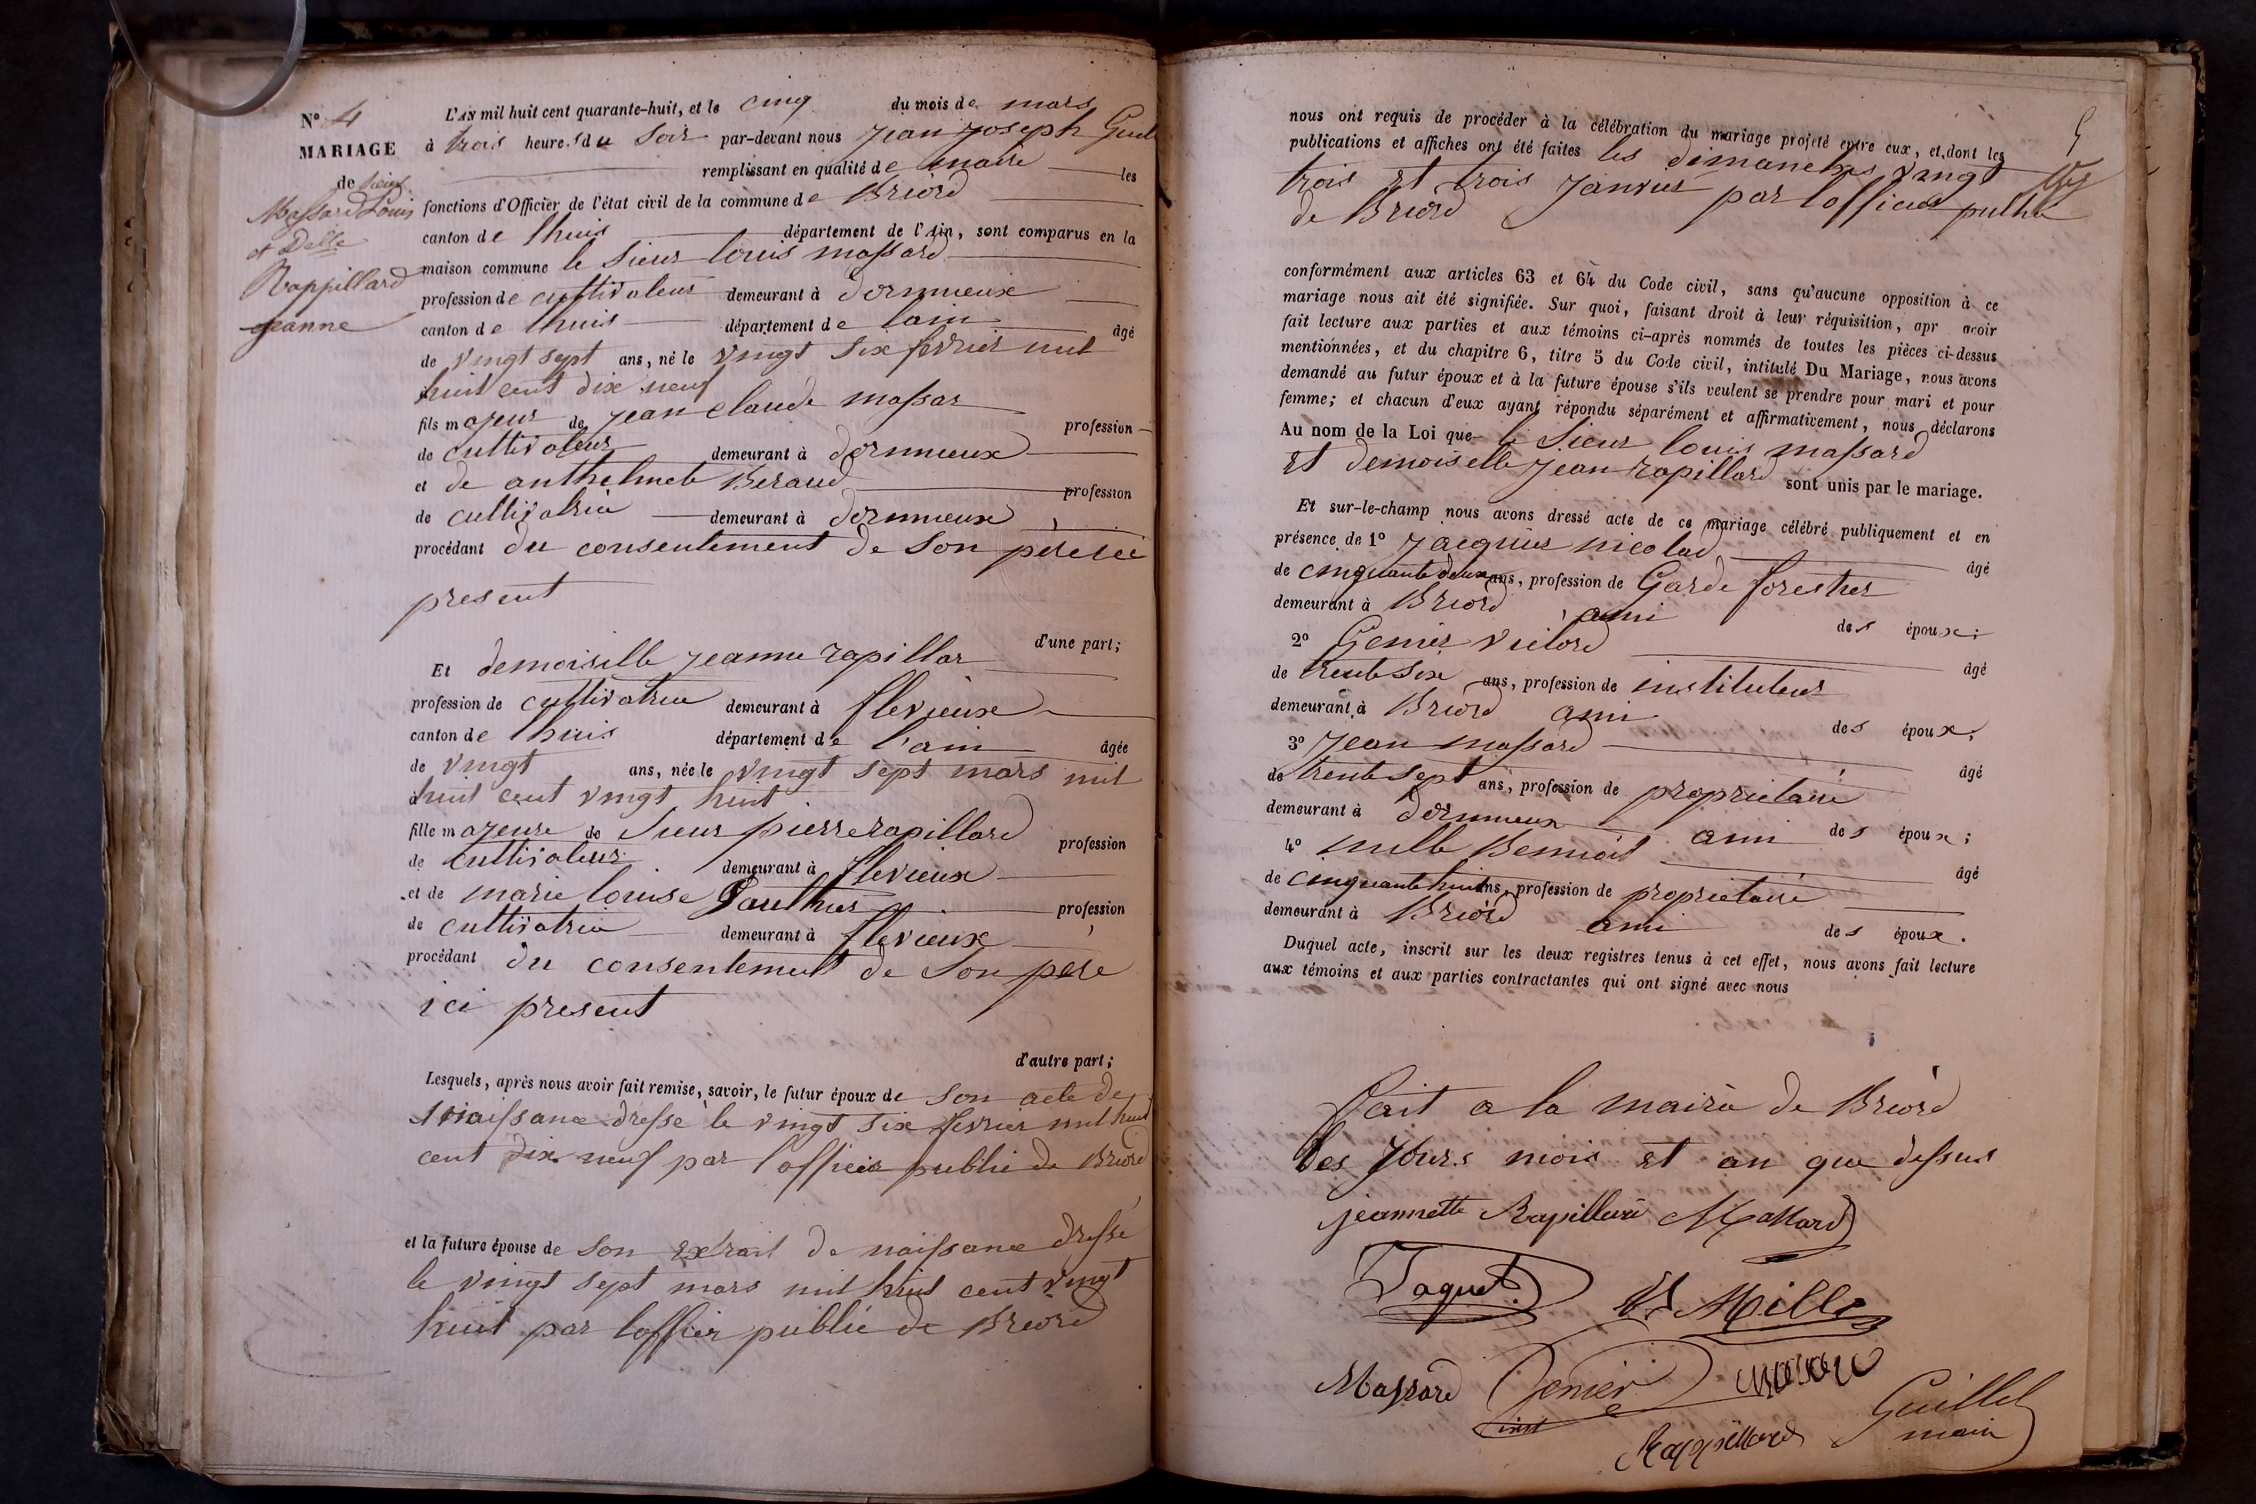 N° 4
MARIAGE
de Sieur
Massard Louis
et Delle
Rappillard
Jeanne
L'AN mil huit cent quarante-huit, et le cinq du mois de mars
à trois heures du soir par-devant nous jean joseph Guil
remplissant en qualité de maire les
fonctions d'Officier de l'état civil de la commune de Briord
canton de lhuis département de l'Ain, sont comparus en la
maison commune le Sieur louis massard
profession de cultivateur demeurant à dornnieux
canton de lhuis département de lain âgé
de vingt sept ans, né le vingt six fevrier mil
huit cent dix neuf
fils majeur de jean claude massar profession
de cultivateur demeurant à dornnieux
et de anthelmete Beraud profession
de cultivatrice demeurant à dornnieux
procédant du consentement de son père ici
present
d'une part;
Et demoiselle jeanne rapillar
profession de cultivatrice demeurant à flevieux
canton de lhuis département de l'ain âgée
de vingt ans, née le vingt sept mars mil
huit cent vingt huit
fille majeure de Sieur pierre rapillard profession
de cultivateur demeurant à flevieux
et de marie louise Gauthier profession
de cultivatrice demeurant à flevieux
procédant du consentement de son pere
ici present
d'autre part;
Lesquels, après nous avoir fait remise, savoir, le futur époux de son acte de
naissance dressé le vingt six fevrier mil huit
cent dix neuf par l officier publie de Briord
et la future épouse de son extrait de naissance dressé
le vingt sept mars mil huit cent vingt
huit par loffier publié de Briord
5
nous ont requis de procéder à la célébration du mariage projeté entre eux, et dont les
publications et affiches ont été faites les dimanches vingt
trois et trois janvier par l officier pulhie
de Briord
conformément aux articles 63 et 64 du Code civil, sans qu'aucune opposition à ce
mariage nous ait été signifiée. Sur quoi, faisant droit à leur réquisition, apr avoir
fait lecture aux parties et aux témoins ci-après nommés de toutes les pièces ci-dessus
mentionnées, et du chapitre 6, titre 5 du Code civil, intitulé Du Mariage, nous avons
demandé au futur époux et à la future épouse s'ils veulent se prendre pour mari et pour
femme; et chacun d'eux ayant répondu séparément et affirmativement, nous déclarons
Au nom de la Loi que le Sieur louis massard
et demoiselle jean rapillard sont unis par le mariage.
Et sur-le-champ nous avons dressé acte de ce mariage célébré publiquement et en
présence de 1° jacquier nicolad âgé
de cinquante deux ans, profession de Garde forestier
demeurant à Briord ami des époux;
2° Genier victord âgé
de trente six ans, profession de instituteur
demeurant à Briord ami des époux;
3° jean massard âgé
de trente sept ans, profession de proprietaire
demeurant à dornnieux ami des époux;
4° mille Bennoit âgé
de cinquante huit ans, profession de proprietaire
demeurant à Briord ami des époux.
Duquel acte, inscrit sur les deux registres tenus à cet effet, nous avons fait lecture
aux témoins et aux parties contractantes qui ont signé avec nous
Fait a la mairie de Briord
les jours mois et an que dessus
jeannette Rapillard Massard
Jaquet Mille
Massard Genier
inst
Rappillard Guillet
maire